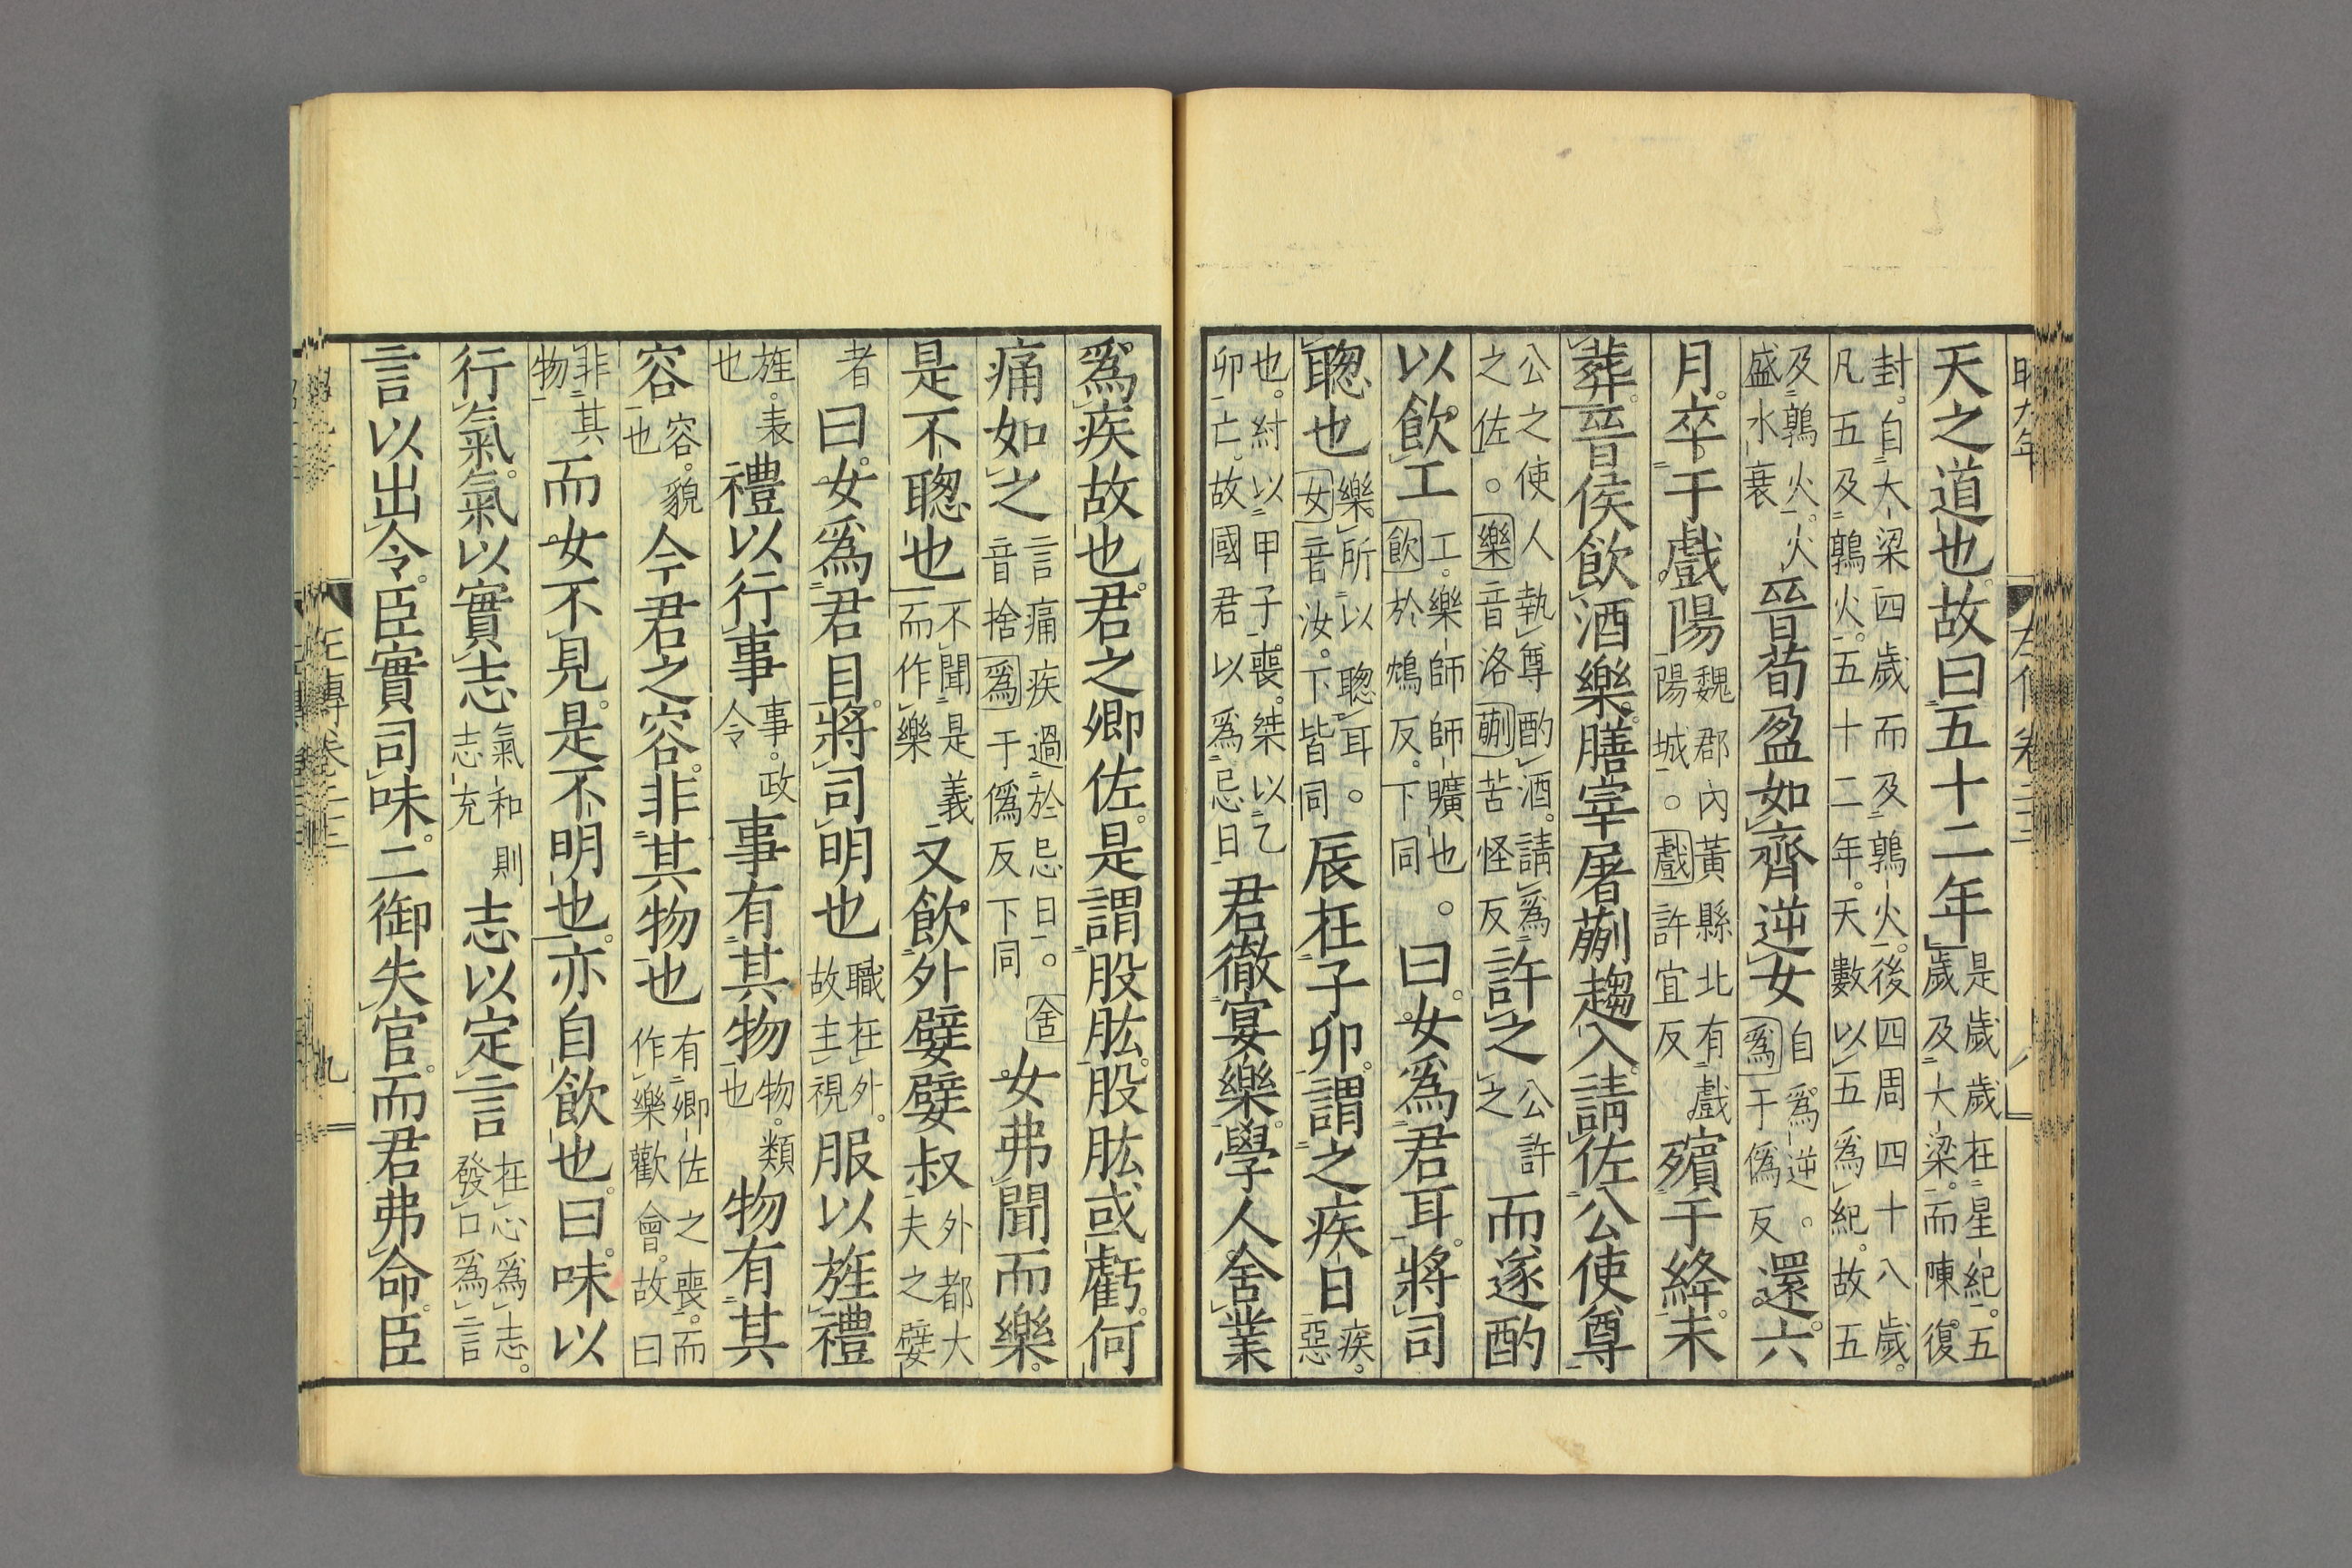 天之道也。故曰五十二年是歲歲在星紀。五歲及大梁。而陳復
封。自大梁四歲而及鶉火。後四周四十八歲。凡五及鶉火。五十二年。天數以五爲紀。故五
及鶉火。火盛水衰晉荀盈如齊逆女自爲逆。爲干僞反還。六
月。卒于戲陽魏郡內黃縣北有戲陽城。戲許宜反殯于絳。未
葬。晉侯飲酒樂。膳宰屠蒯趨入。請佐公使尊
公之使人執尊酌酒。請爲之佐。樂音洛蒯苦怪反許之公許之而遂酌
以飲工工。樂師師曠也飲於鴆反。下同。曰。女爲君耳。將司
聰也樂所以聰耳。女音汝。下皆同辰在子卯。謂之疾日疾。惡
也。紂以甲子喪。桀以乙卯亡。故國君以爲忌日君徹宴樂。學人舍業
爲疾故也。君之卿佐。是謂股肱。股肱或虧。何
痛如之言痛疾過於忌日。舍音捨爲于僞反下同女弗聞而樂。
是不聰也不聞是義而作樂又飲外嬖嬖叔外都大夫之嬖
者曰。女爲君目。將司明也職在外。故主視服以旌禮
旌。表也禮以行事事。政令事有其物物。類也物有其
容容。貌也今君之容。非其物也有卿佐之喪。而作樂歡會。故曰
非其物而女不見。是不明也。亦自飲也。曰。味以
行氣。氣以實志氣和則志充志以定言在心爲志。發口爲言
言以出令。臣實司味。二御失官。而君弗命。臣